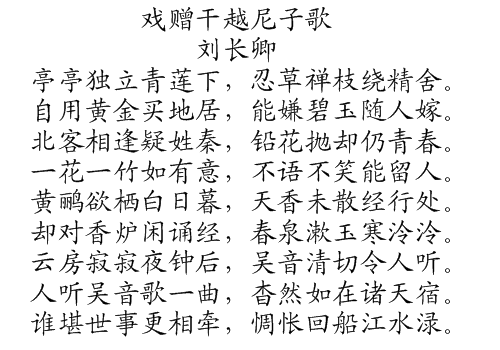 戏赠干越尼子歌
刘长卿
亭亭独立青莲下，忍草禅枝绕精舍。
自用黄金买地居，能嫌碧玉随人嫁。
北客相逢疑姓秦，铅花抛却仍青春。
一花一竹如有意，不语不笑能留人。
黄鹂欲栖白日暮，天香未散经行处。
却对香炉闲诵经，春泉漱玉寒泠泠。
云房寂寂夜钟后，吴音清切令人听。
人听吴音歌一曲，杳然如在诸天宿。
谁堪世事更相牵，惆怅回船江水渌。